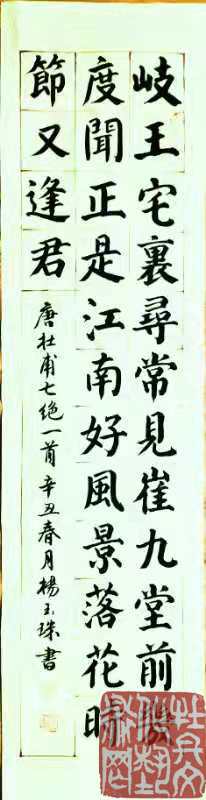 岐王宅裏尋常見崔九堂前幾
度聞正是江南好風景落花時
節又逢君
唐杜甫七絶一首辛丑春月楊玉珠書